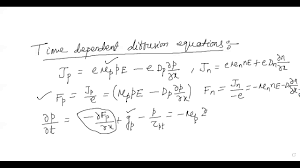 Time dependent diffusion equations:
Jp = e μp p E − e Dp ∂p/∂x , Jn = e μn n E + e Dn ∂n/∂x
✓ Fp = Jp/e = (μp p E − Dp ∂p/∂x) Fn = Jn/−e = −μn n E − Dn ∂n/∂x
∂p/∂t = −∂Fp/∂x + gp − p/τpt = −μp